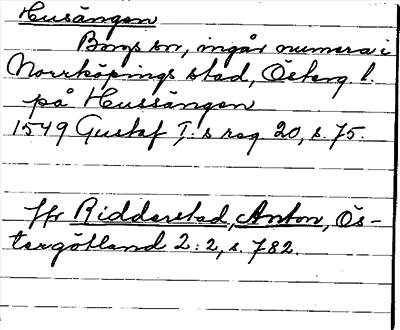 Husängen
Borgs sn, ingår numera i
Norrköpings stad, Österg. l.
på Hussängen
1549 Gustaf I:s reg 20, s. 75.
Jfr Ridderstad, Anton, Ös-
tergötland 2:2, s. 782.